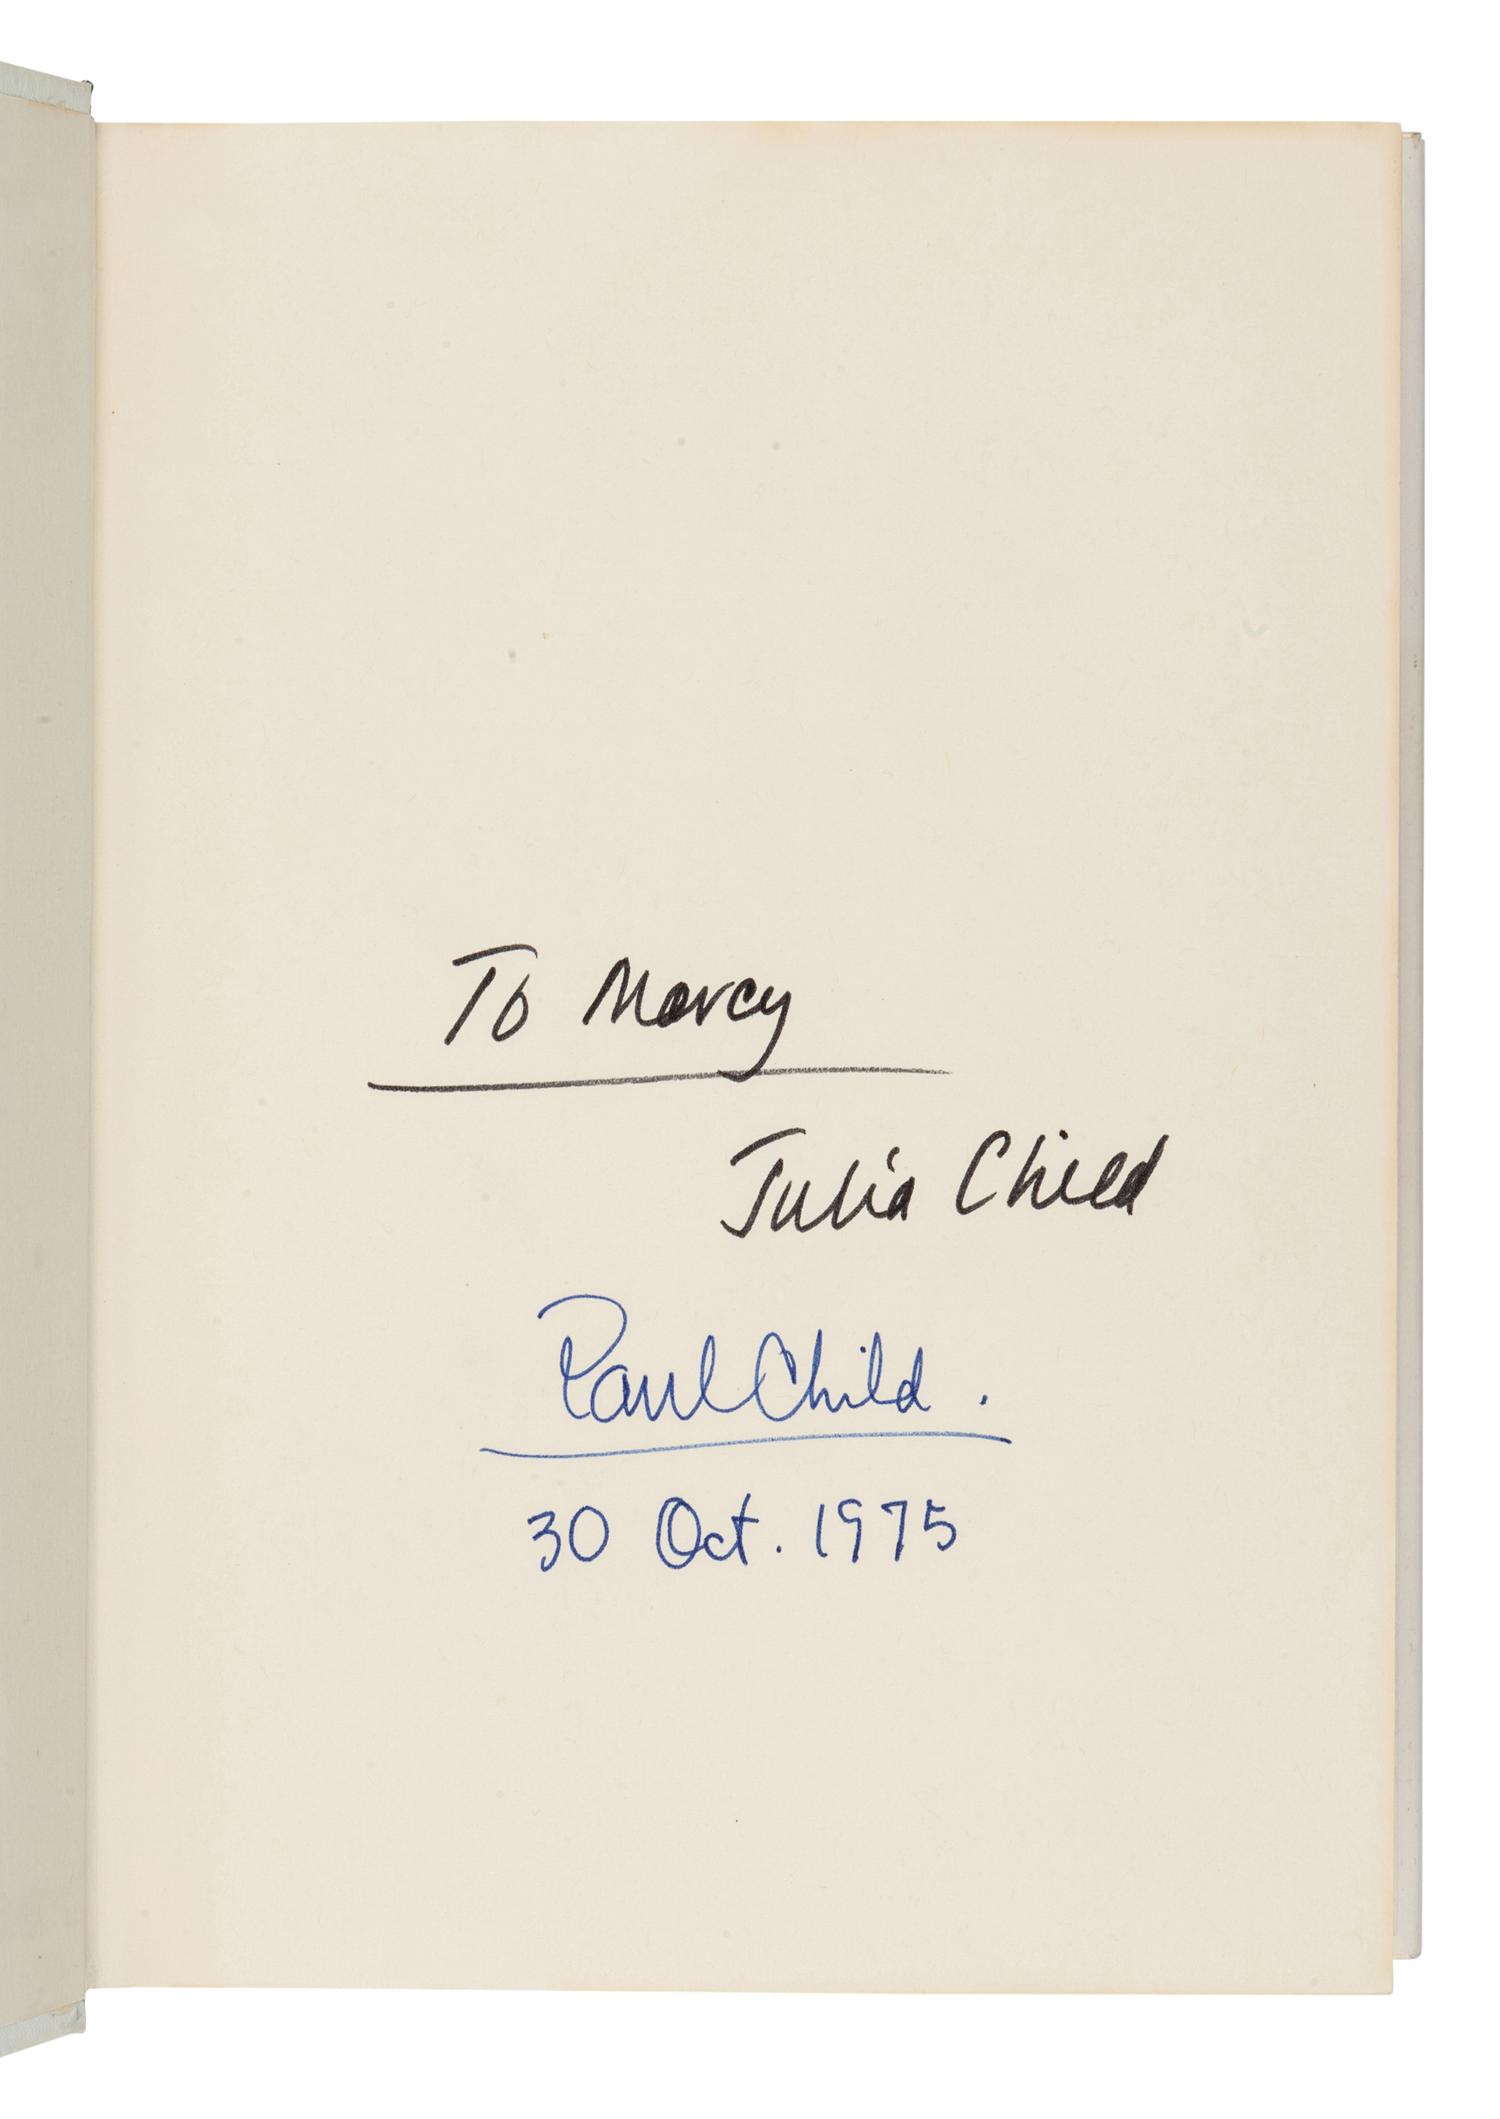 To Marcy
Julia Child
Paul Child.
30 Oct. 1975